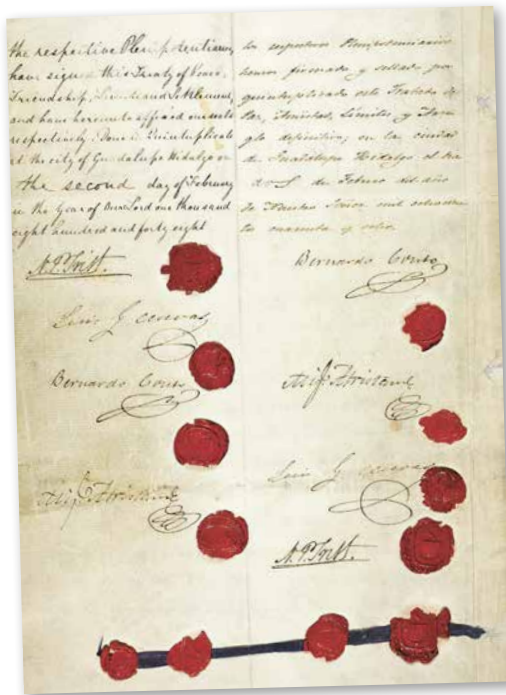 the respective Plenipotentiaries
have signed this Treaty of Peace,
Friendship, Limits and Settlement,
and have hereunto affixed our seals
respectively. Done in Quintuplicate
at the city of Guadalupe Hidalgo on
the second day of February
in the year of Our Lord one thousand
eight hundred and forty eight
N. P. Trist.
Luis G. Cuevas
Bernardo Couto
Migl. Atristain
los respectivos Plenipotenciarios
hemos firmado y sellado por
quintuplicado este Tratado de
Paz, Amistad, Límites y
glo definitivo, en la ciudad
de Guadalupe Hidalgo el dia
dos de Febrero del año
de Nuestro Señor mil ochocien
tos cuarenta y ocho.
Bernardo Couto
Migl. Atristain
Luis G. Cuevas
N. P. Trist.